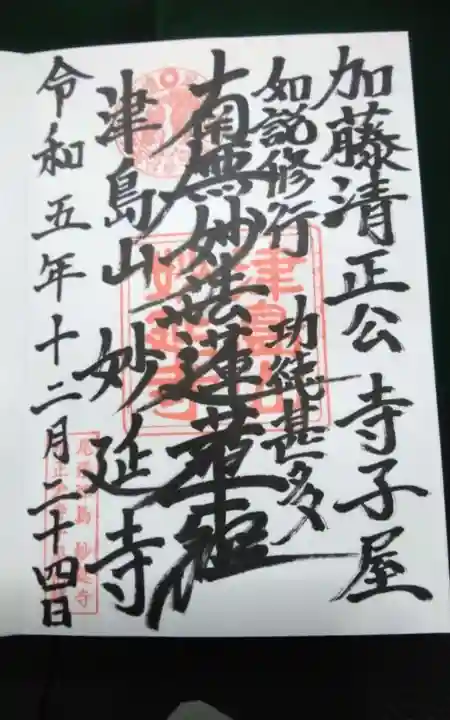 加藤清正公 寺子屋
如説修行 功徳甚多
南無妙法蓮華経
津島山 妙延寺
令和五年十二月二十四日
津島山
妙延寺